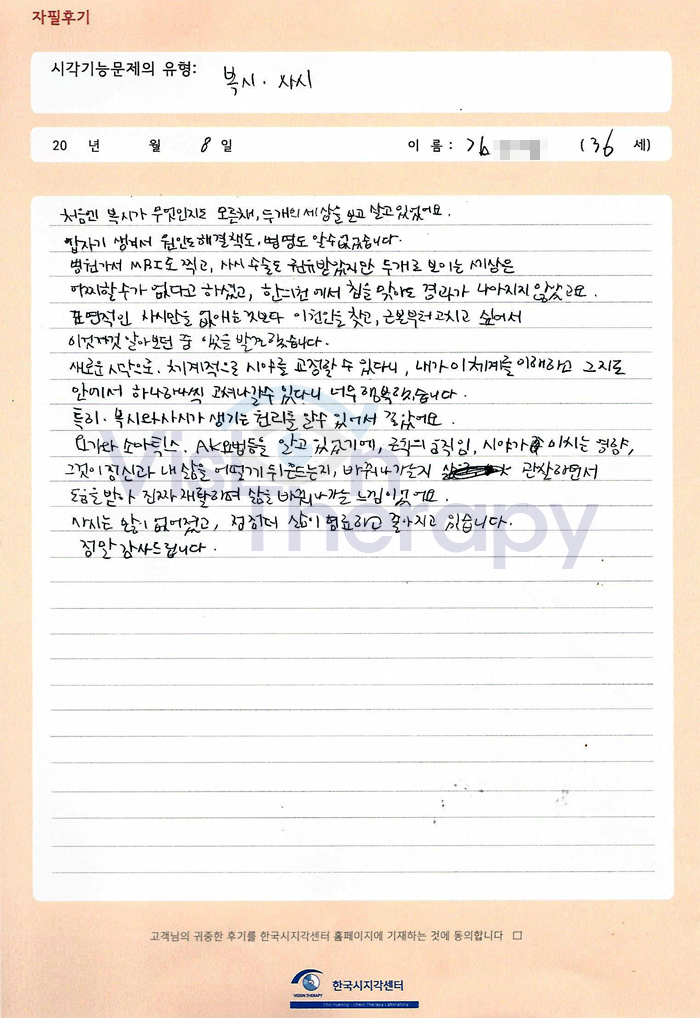 자필후기
시각기능문제의 유형: 복시 · 사시
20 년 월 8 일 이 름 : 김 (36 세)
처음엔 복시가 무엇인지도 모른채, 두개의 세상을 보고 살고 있었어요.
갑자기 생겨서 원인도 해결책도, 병명도 알수없었습니다.
병원가서 MRI도 찍고, 사시 수술도 권유받았지만 두개로 보이는 세상은
어찌할수가 없다고 하셨고, 한의원에서 침을 맞아도 경과가 나아지지 않았고요.
표면적인 사시만을 없애는것보다 이원인을 찾고, 근본부터 고치고 싶어서
이것저것 알아보던 중 이곳을 발견했습니다.
새로운 시작으로, 체계적으로 시야를 교정할 수 있다니, 내가 이 체계를 이해하고 그
안에서 하나하나씩 고쳐나갈수 있다니 너무 행복했습니다.
특히, 복시와 사시가 생기는 원리를 알수 있어서 좋았어요.
요가와 소마틱스, AK요법등을 알고 있었기에, 근육의 움직임, 시야가 미치는 영향,
그것이 정신과 내 삶을 어떻게 뒤흔드는지, 바꿔나가는지 관찰하면서
도움을 받아 진짜 재활하며 삶을 바꿔나가는 느낌이었어요.
사시는 많이 없어졌고, 점점더 삶이 명료하고 좋아지고 있습니다.
정말 감사드립니다.
Vision
Therapy
고객님의 귀중한 후기를 한국시지각센터 홈페이지에 기재하는 것에 동의합니다 □
VISION THERAPY
한국시지각센터